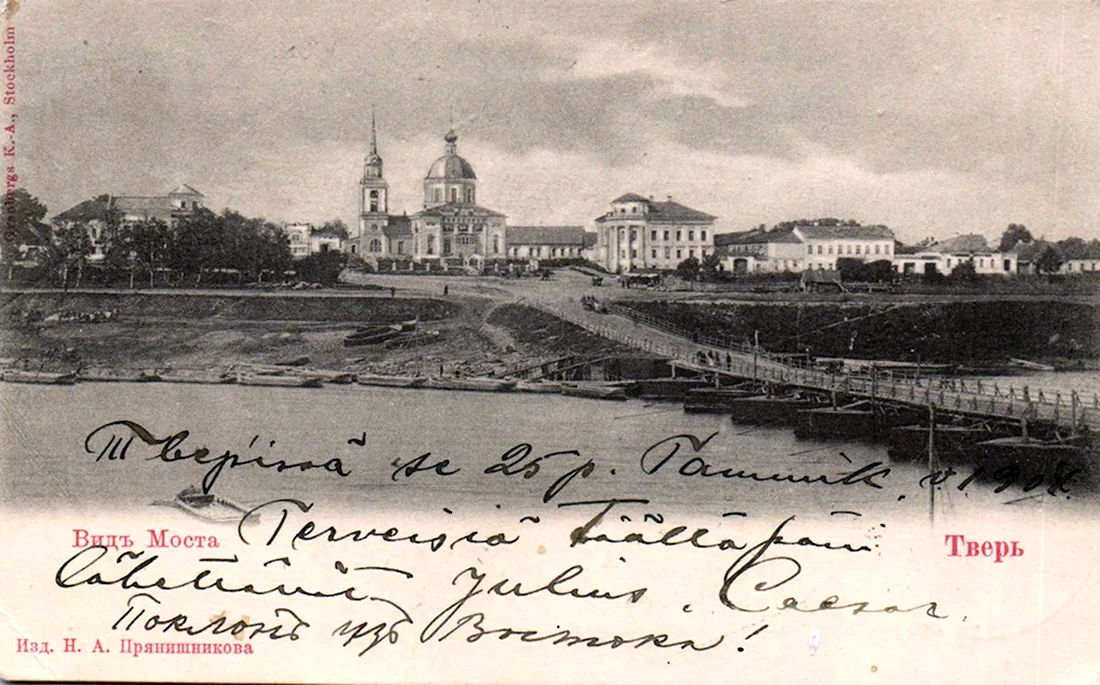 Granbergs K.-A., Stockholm
Тверissä se 25 p. Tammik. v. 1904.
Видъ Моста
Terveisiä täältäpäin
Тверь
lähettävät Julius, Caesar.
Поклонъ изъ Востока!
Изд. Н. А. Прянишникова